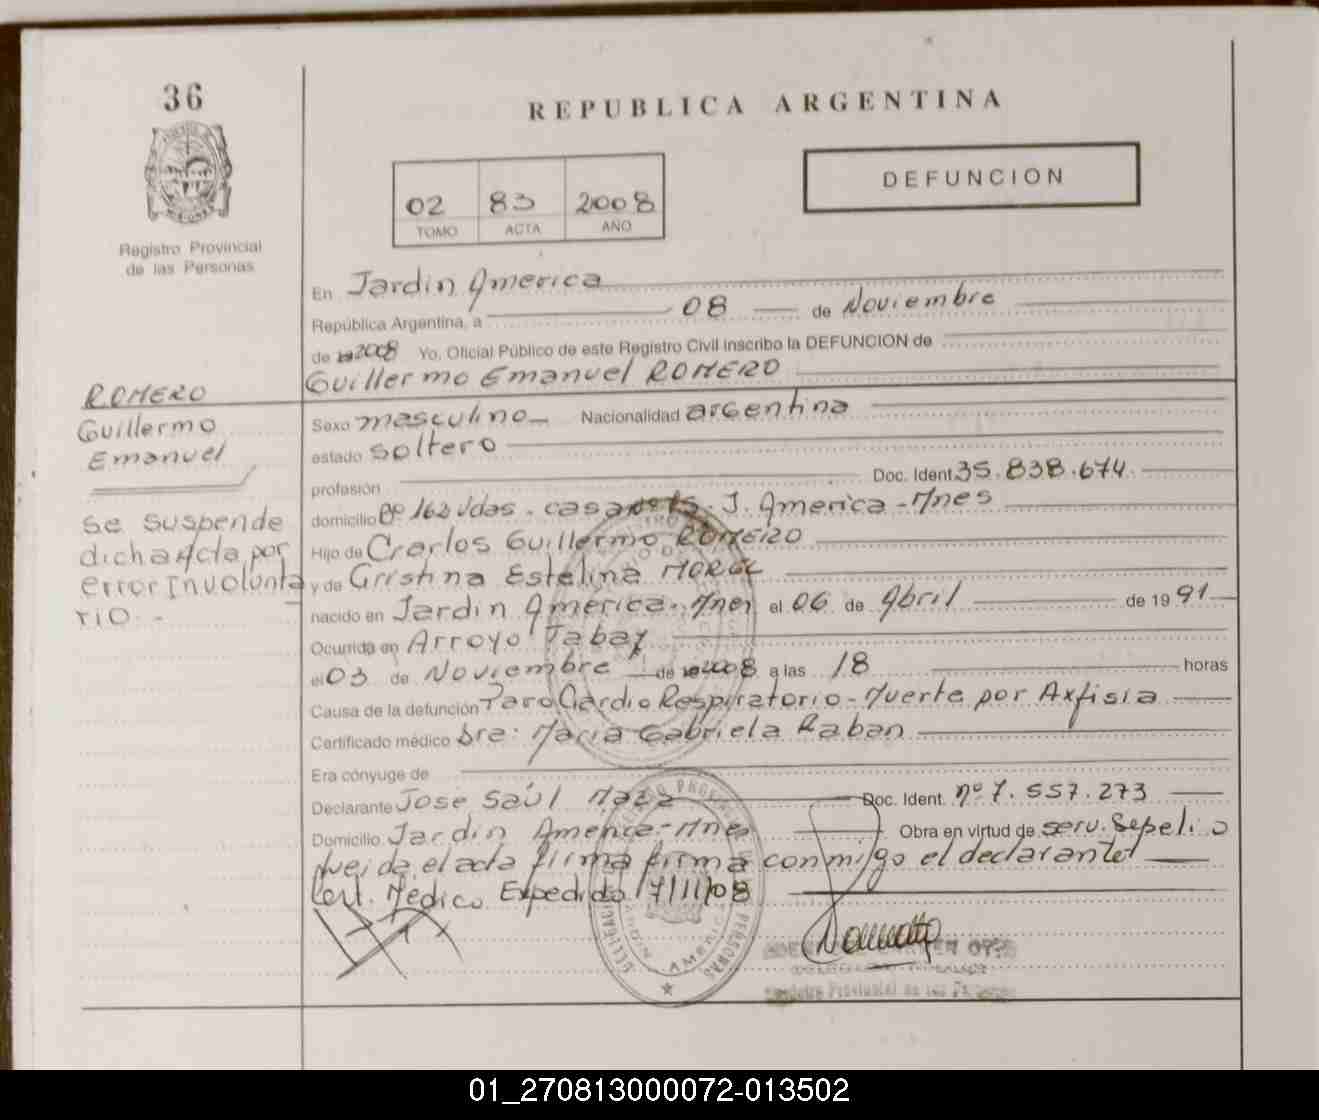 36
REPUBLICA ARGENTINA
DEFUNCION
02 83 2008
TOMO ACTA AÑO
Registro Provincial
de las Personas
En Jardin America
República Argentina, a 08 de Noviembre
de 2008 Yo, Oficial Público de este Registro Civil inscribo la DEFUNCION de
Guillermo Emanuel ROMERO
ROMERO
Guillermo
Emanuel
Se suspende
dicha Acta por
error Involunta
rio.-
Sexo masculino Nacionalidad argentina
estado soltero
profesión Doc. Ident 35.838.674.
domicilio Bº 162 Vdas. casa J. America - Mnes
Hijo de Crarlos Guillermo ROMERO
y de Cristina Estelina
nacido en Jardin America. Mnes el 06 de Abril de 1991
Ocurrida en Arroyo Tabay
el 03 de Noviembre de 2008 a las 18 horas
Causa de la defunción Paro Cardio Respiratorio - Muerte por Axfisia
Certificado médico Dra: Maria Gabriela Raban
Era cónyuge de
Declarante Jose Saúl Doc. Ident. nº 7.557.273
Domicilio Jardin America - Mnes Obra en virtud de serv. Sepelio
el acta firma firma conmigo el declarante
Cert. Medico Expedido 7/11/08
Registro Provincial de las Personas
01_270813000072-013502